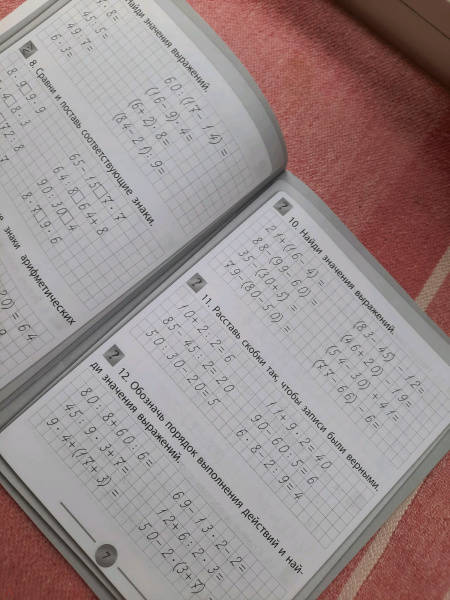 айди значения выражений.
45:5=
49:7=
6·3=
60:(17-14)=
(16-9)·4=
(6+2):8=
(84-21):9=
8. Сравни и поставь соответствующие знаки.
8·9□9·9
4□8·3
□72:8
65-15□7·7
64:8□64+8
90:30□4
8·7□9·6
знаки арифметических
0)=64
10. Найди значения выражений.
24+(16-4)=
88-(99-60)=
35-(30+5)=
79-(80-50)=
(83-45)-12=
(46+20)-19=
(54-30)+41=
(77-66)-6=
11. Расставь скобки так, чтобы записи были верными.
10+2:2=6
85-45:2=20
50:30-20=5
11+9·2=40
90-60:5=6
6·8-2:9=4
12. Обозначь порядок выполнения действий и най-
ди значения выражений.
80:8+60:6=
45:9·3+7=
9·4+(17+3)=
69-13·2-2=
12+6:2·3=
50-2·(3+7)=
7